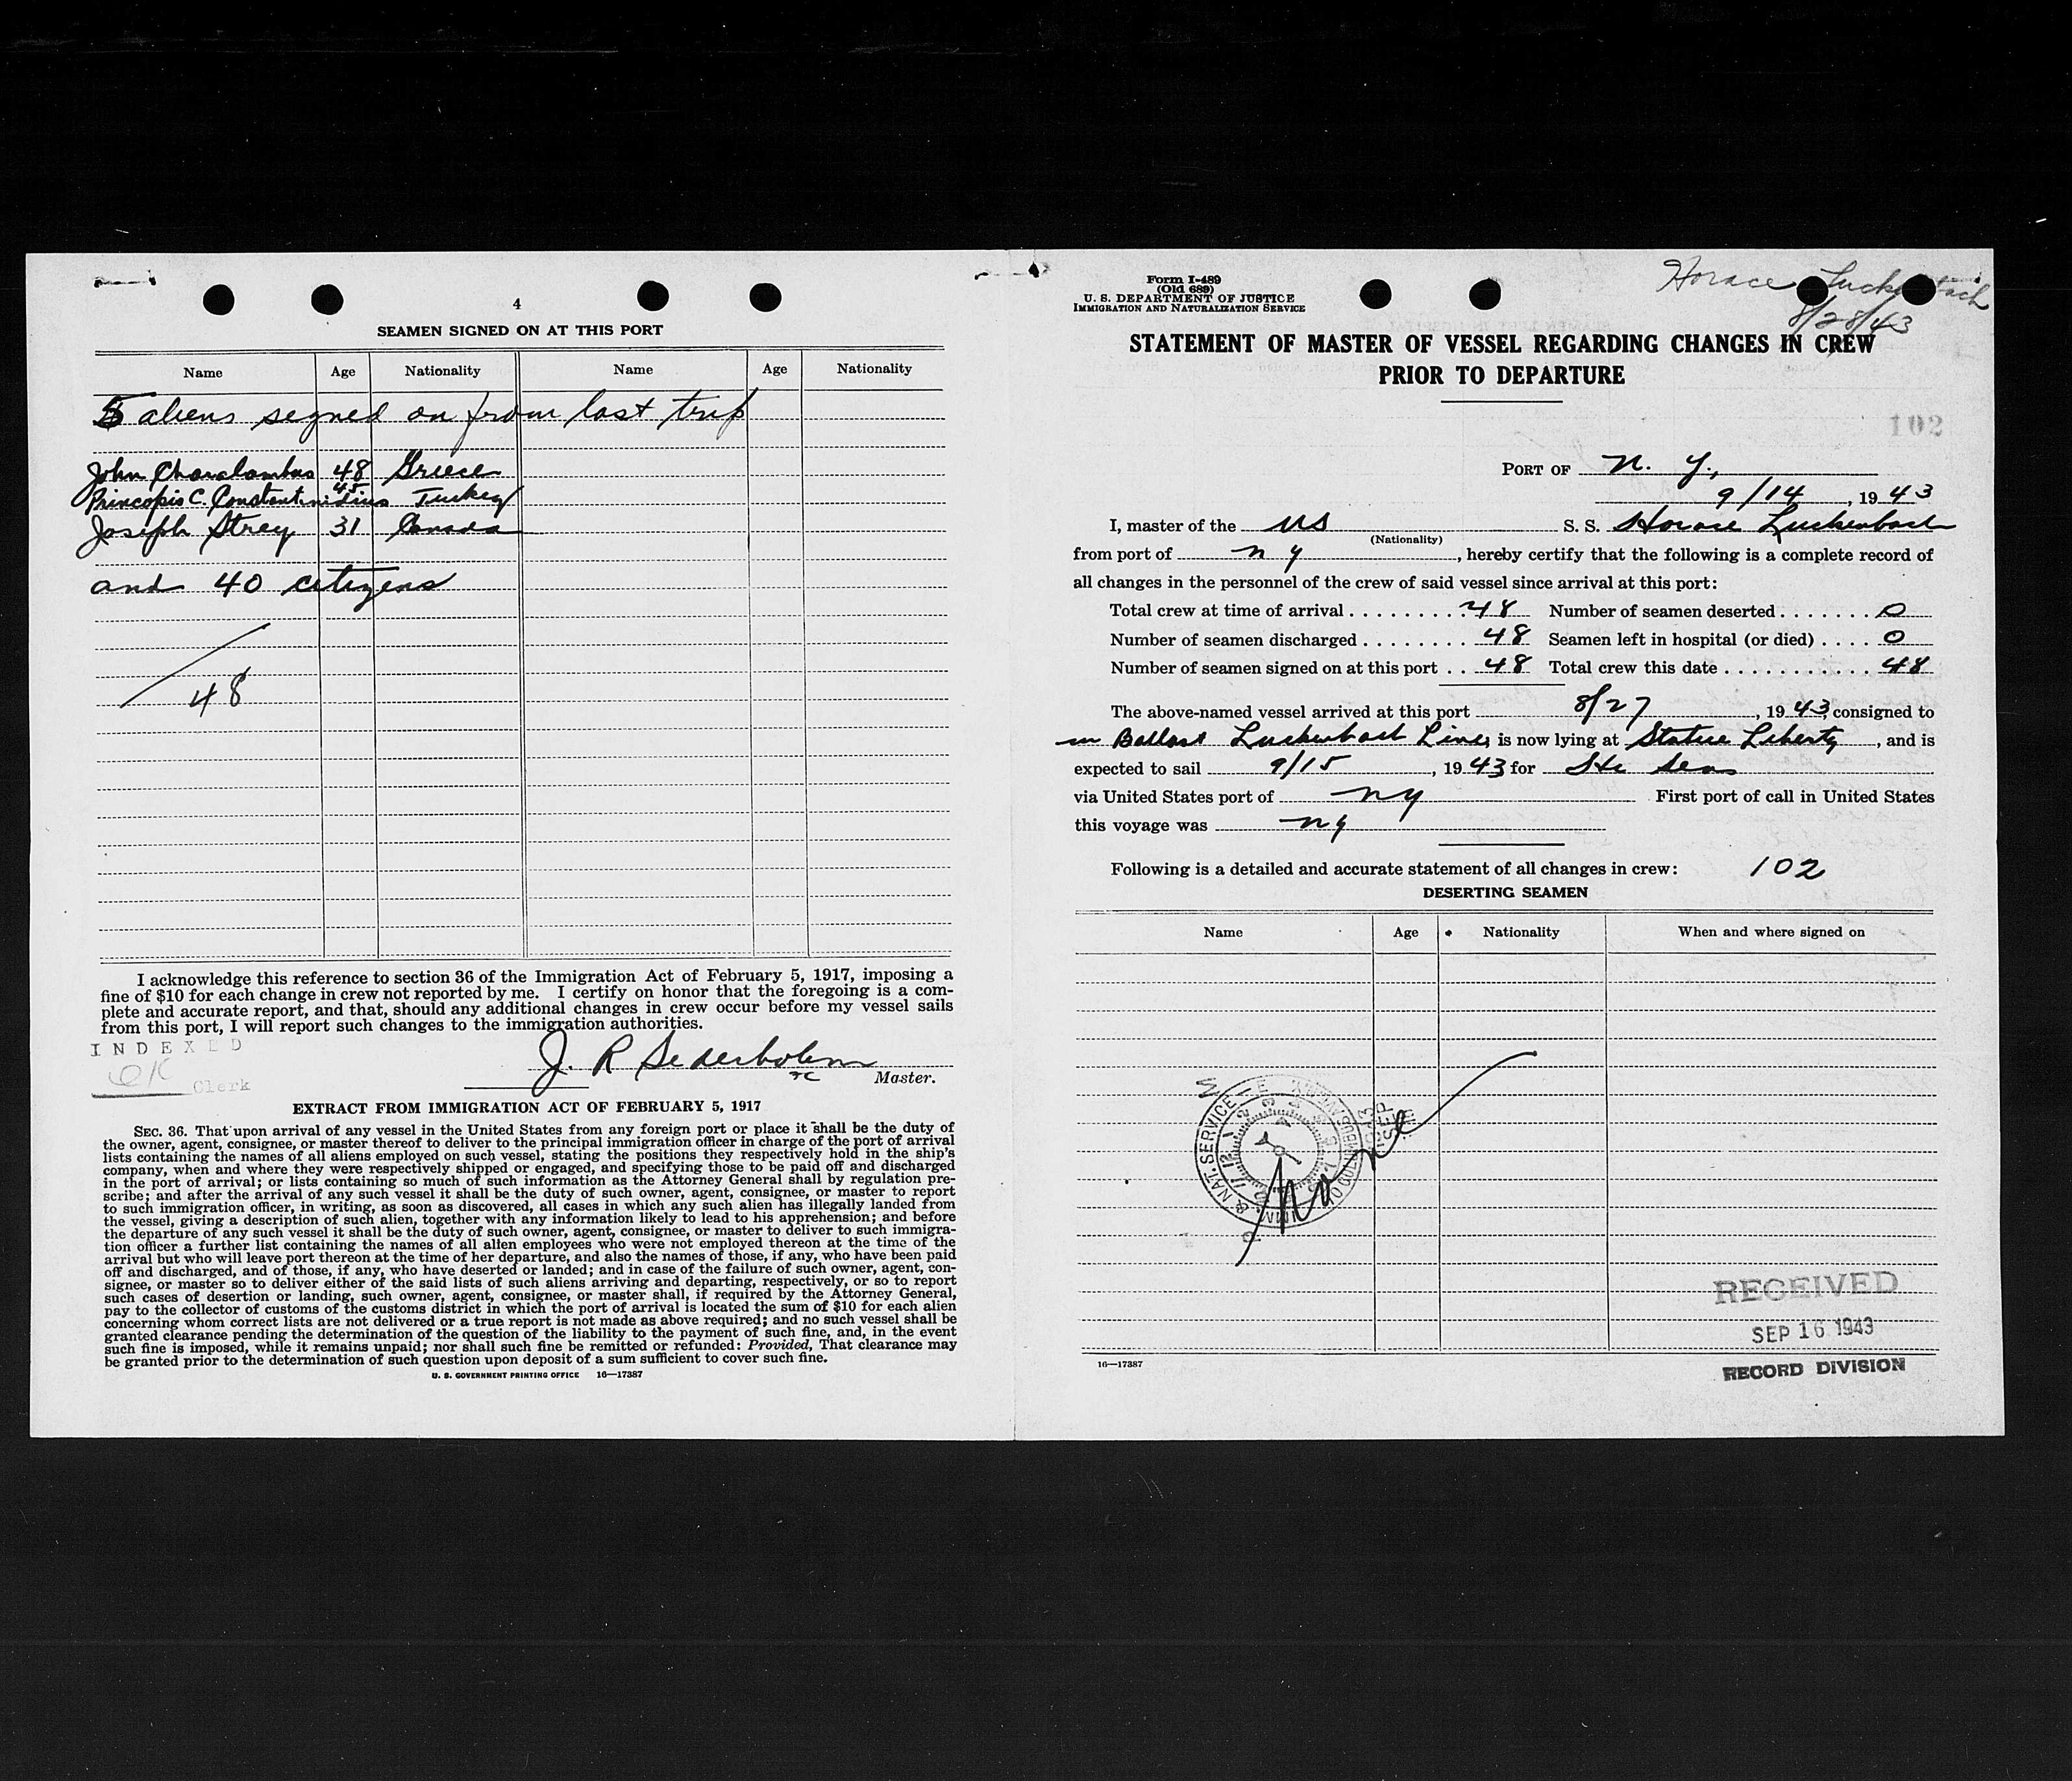 4
SEAMEN SIGNED ON AT THIS PORT
Name Age Nationality Name Age Nationality
5 aliens signed on from last trip
John Charalambus 48 Greece
Princopio C. Constantinidius 45 Turkey
Joseph Strey 31 Canada
and 40 citizens
48
I acknowledge this reference to section 36 of the Immigration Act of February 5, 1917, imposing a
fine of $10 for each change in crew not reported by me. I certify on honor that the foregoing is a com-
plete and accurate report, and that, should any additional changes in crew occur before my vessel sails
from this port, I will report such changes to the immigration authorities.
INDEXED
OK Clerk
J. R Sederholm
Master.
EXTRACT FROM IMMIGRATION ACT OF FEBRUARY 5, 1917
SEC. 36. That upon arrival of any vessel in the United States from any foreign port or place it shall be the duty of
the owner, agent, consignee, or master thereof to deliver to the principal immigration officer in charge of the port of arrival
lists containing the names of all aliens employed on such vessel, stating the positions they respectively hold in the ship's
company, when and where they were respectively shipped or engaged, and specifying those to be paid off and discharged
in the port of arrival; or lists containing so much of such information as the Attorney General shall by regulation pre-
scribe; and after the arrival of any such vessel it shall be the duty of such owner, agent, consignee, or master to report
to such immigration officer, in writing, as soon as discovered, all cases in which any such alien has illegally landed from
the vessel, giving a description of such alien, together with any information likely to lead to his apprehension; and before
the departure of any such vessel it shall be the duty of such owner, agent, consignee, or master to deliver to such immigra-
tion officer a further list containing the names of all alien employees who were not employed thereon at the time of the
arrival but who will leave port thereon at the time of her departure, and also the names of those, if any, who have been paid
off and discharged, and of those, if any, who have deserted or landed; and in case of the failure of such owner, agent, con-
signee, or master so to deliver either of the said lists of such aliens arriving and departing, respectively, or so to report
such cases of desertion or landing, such owner, agent, consignee, or master shall, if required by the Attorney General,
pay to the collector of customs of the customs district in which the port of arrival is located the sum of $10 for each alien
concerning whom correct lists are not delivered or a true report is not made as above required; and no such vessel shall be
granted clearance pending the determination of the question of the liability to the payment of such fine, and, in the event
such fine is imposed, while it remains unpaid; nor shall such fine be remitted or refunded: Provided, That clearance may
be granted prior to the determination of such question upon deposit of a sum sufficient to cover such fine.
U. S. GOVERNMENT PRINTING OFFICE 16—17387
Form I-489
(Old 689)
U. S. DEPARTMENT OF JUSTICE
IMMIGRATION AND NATURALIZATION SERVICE
Horace Luckenbach
8/28/43
STATEMENT OF MASTER OF VESSEL REGARDING CHANGES IN CREW
PRIOR TO DEPARTURE
102
PORT OF N. Y.,
9/14, 1943
I, master of the US S. S. Horace Luckenbach
(Nationality)
from port of n y, hereby certify that the following is a complete record of
all changes in the personnel of the crew of said vessel since arrival at this port:
Total crew at time of arrival 48 Number of seamen deserted 0
Number of seamen discharged 48 Seamen left in hospital (or died) 0
Number of seamen signed on at this port 48 Total crew this date 48
The above-named vessel arrived at this port 8/27, 1943, consigned to
in Ballast Luckenbach Line, is now lying at Statue Liberty, and is
expected to sail 9/15, 1943 for
via United States port of ny First port of call in United States
this voyage was ny
Following is a detailed and accurate statement of all changes in crew: 102
DESERTING SEAMEN
Name Age Nationality When and where signed on
None
IMM. & NAT. SERVICE
SEP
RECEIVED
SEP 16 1943
RECORD DIVISION
16—17387